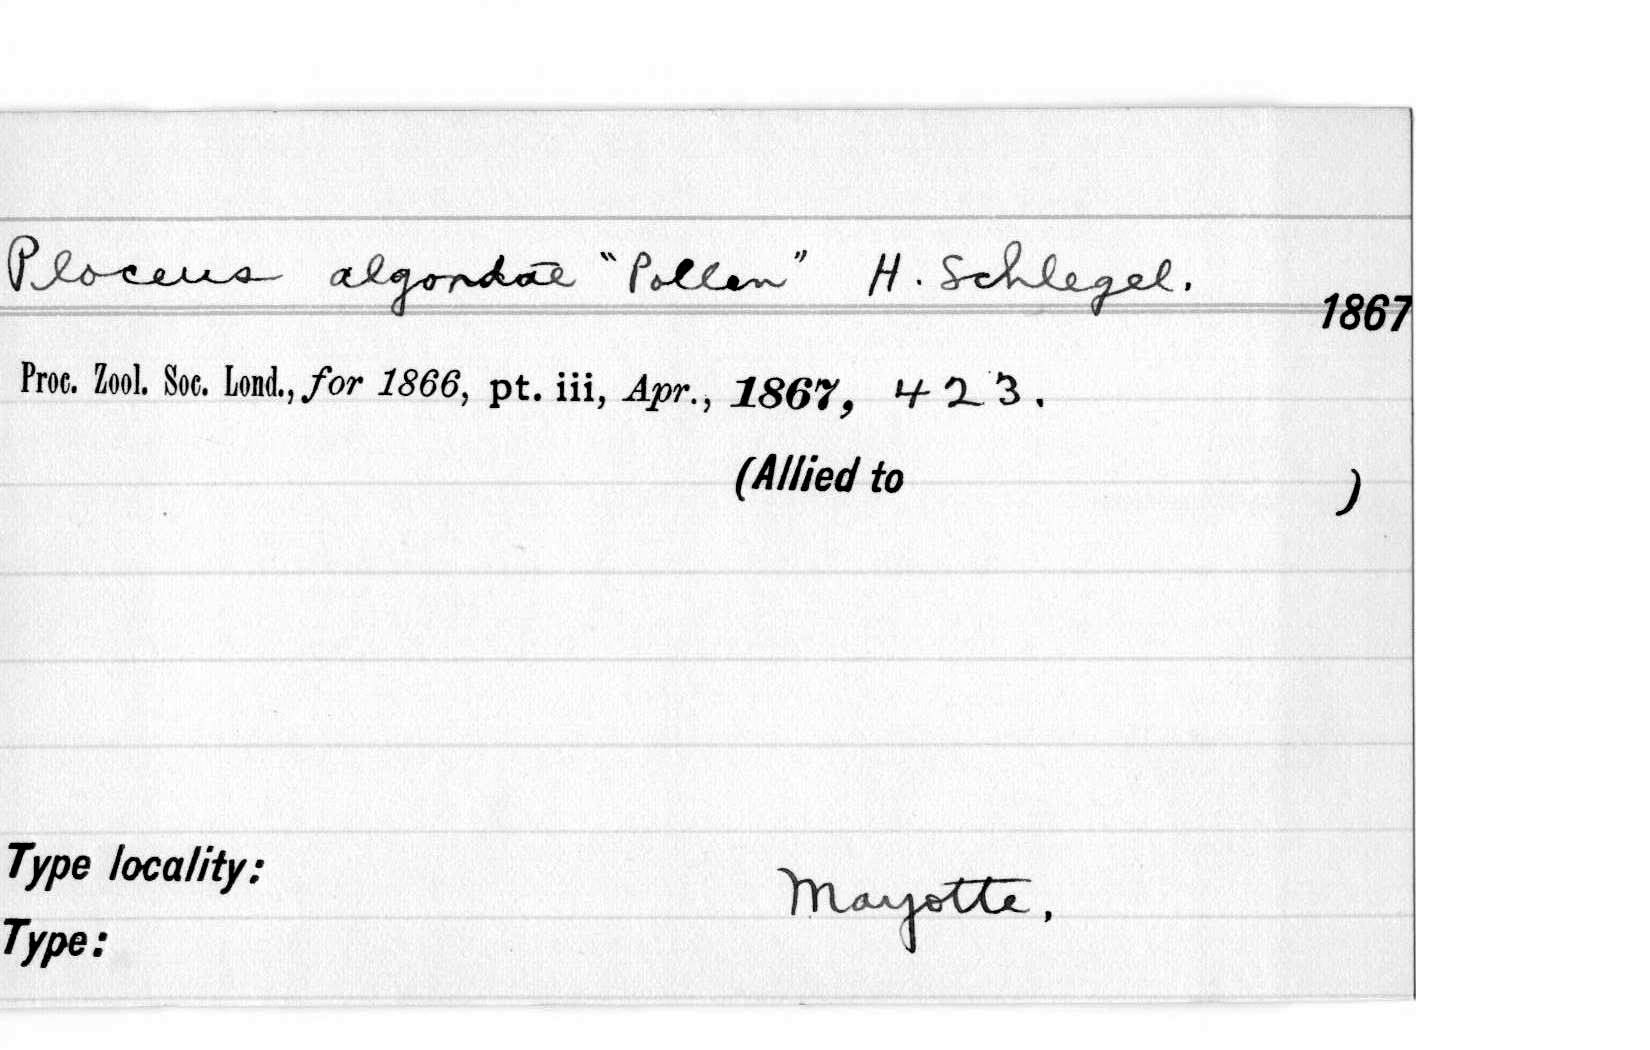 Ploceus algondae "Pollen" H. Schlegel.
1867
Proc. Zool. Soc. Lond., for 1866, pt. iii, Apr., 1867, 423.
(Allied to )
Type locality:
Mayotte.
Type: